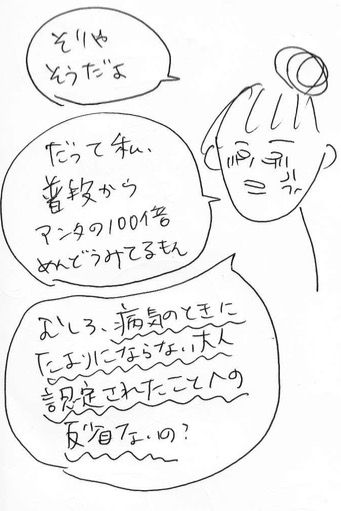 そりゃ
そうだよ
だって私、
普段から
アンタの100倍
めんどうみてるもん
むしろ、病気のときに
たよりにならない大人
認定されたことへの
反省ないの？